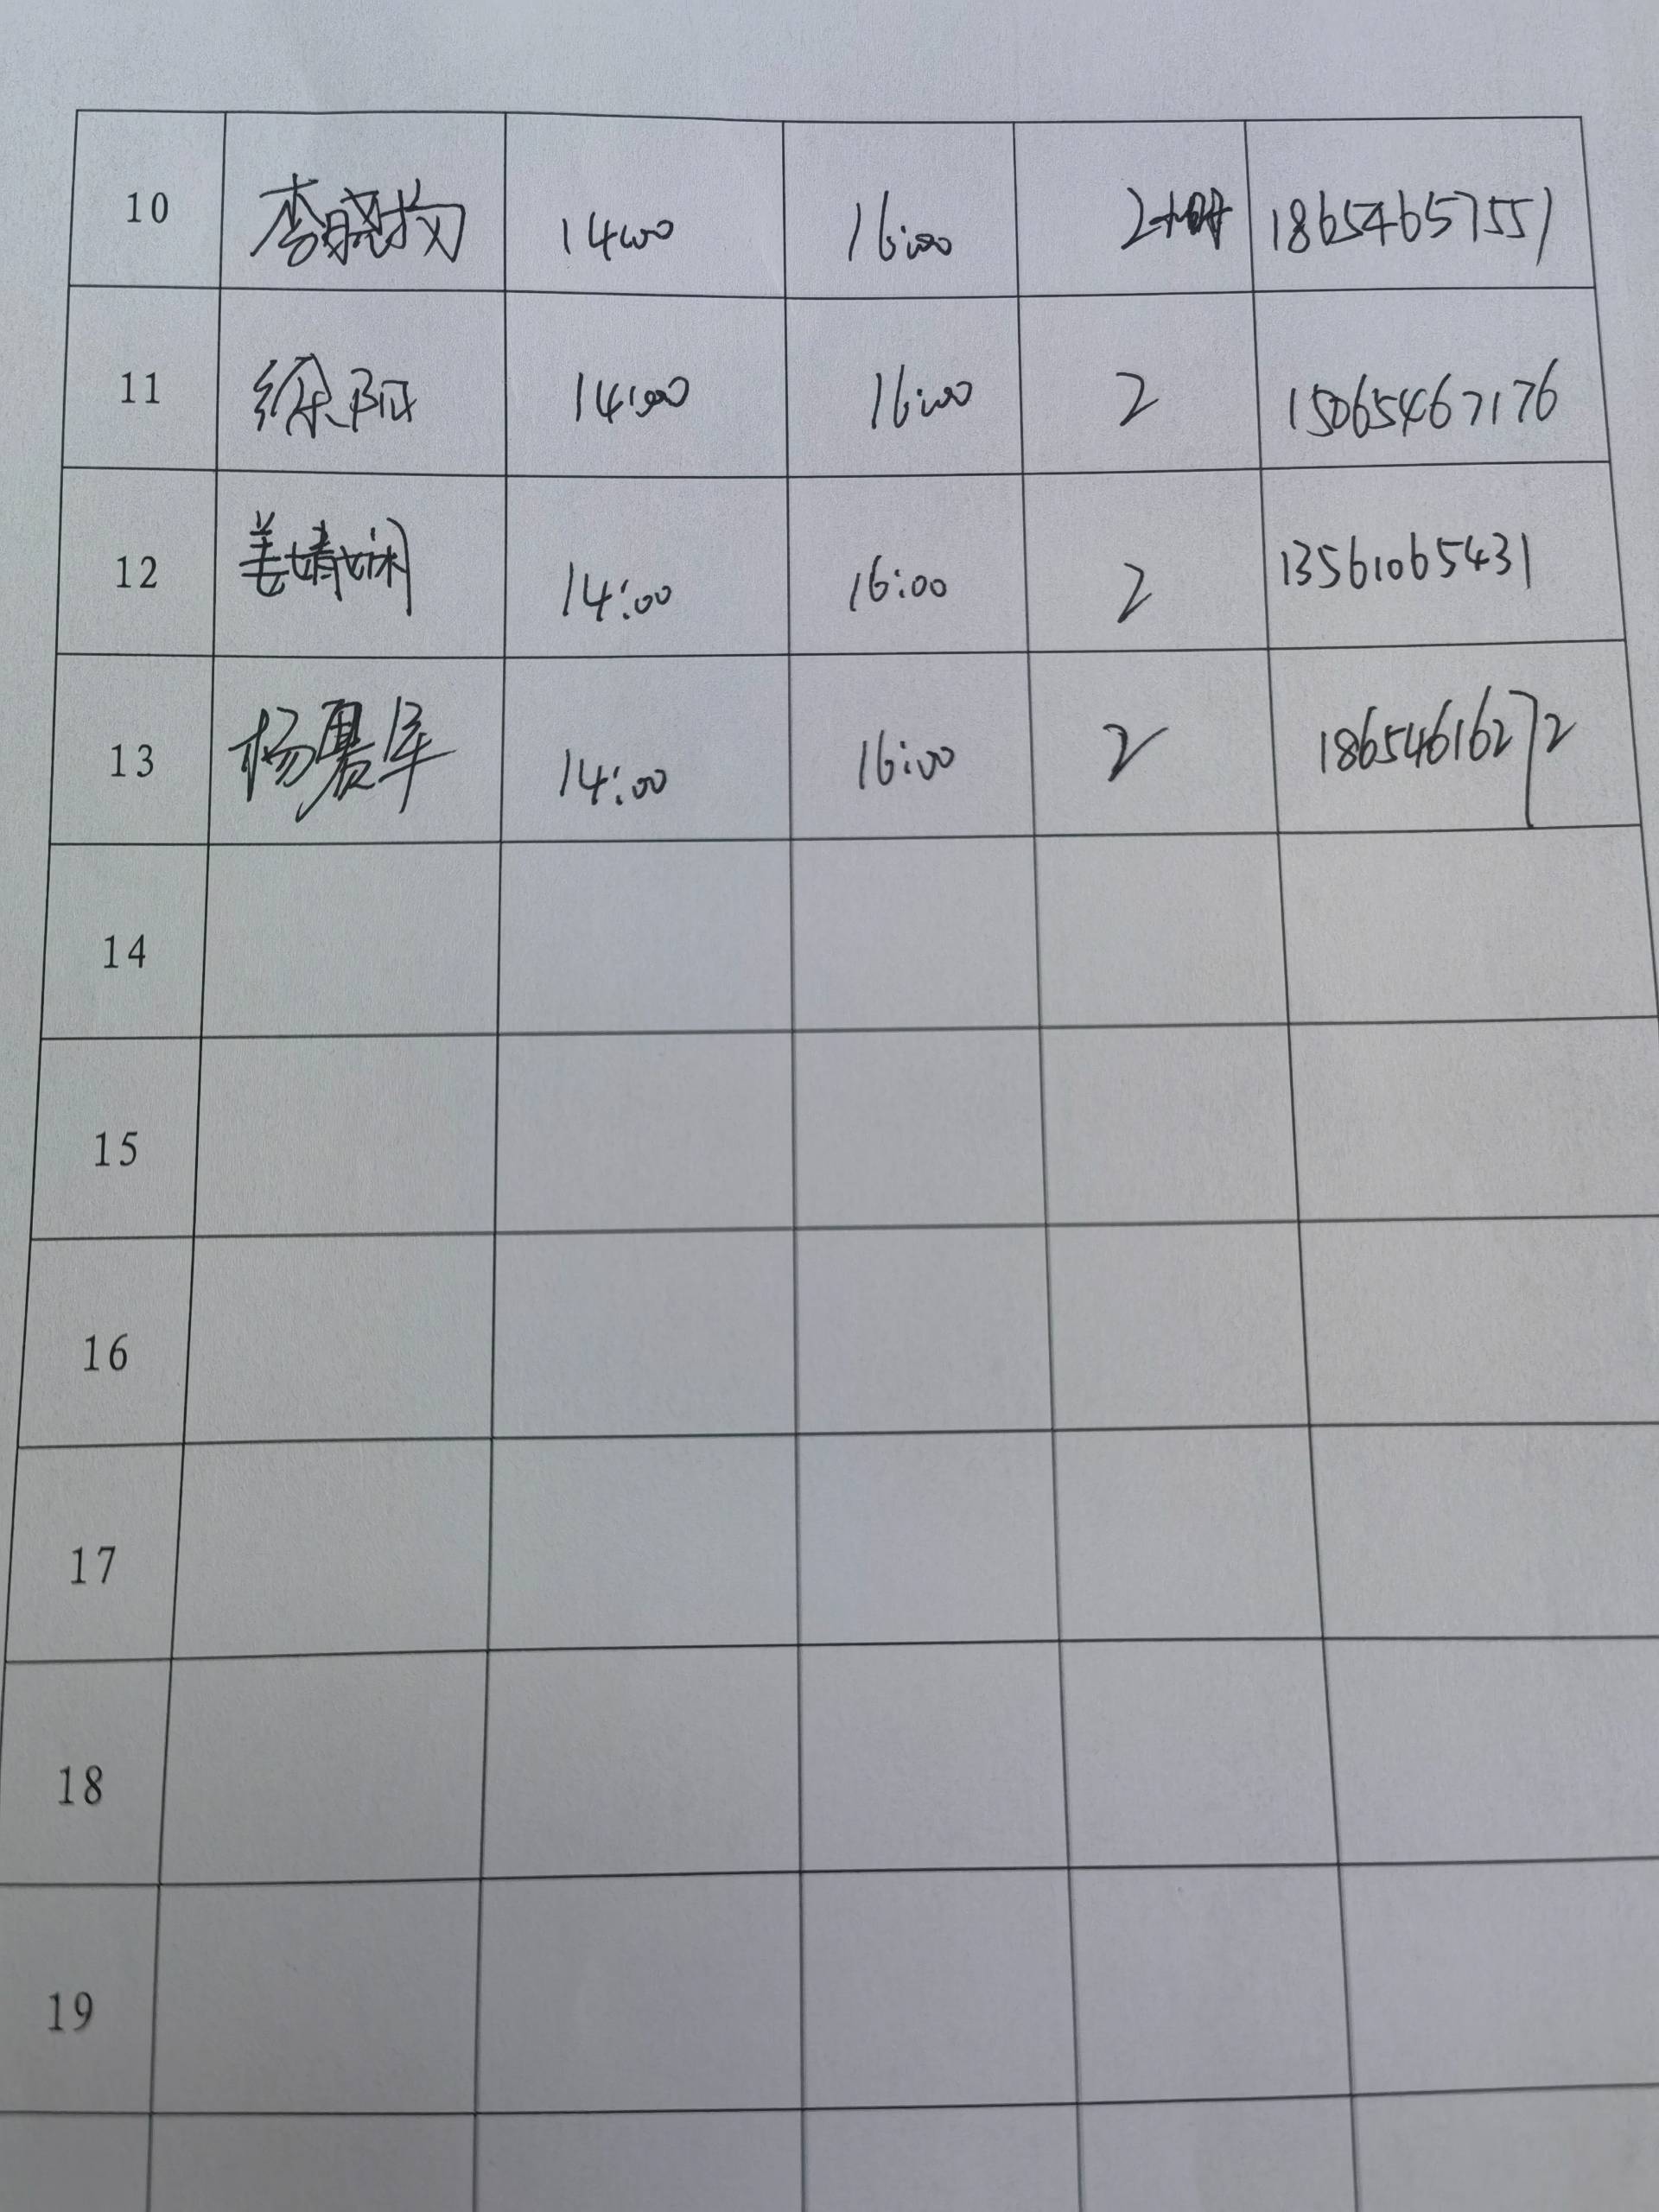 10 李晓 14:00 16:00 2小时 18654657551
11 徐阳 14:00 16:00 2 15065467176
12 姜婧娴 14:00 16:00 2 13561065431
13 杨 14:00 16:00 2 18654616272
14
15
16
17
18
19